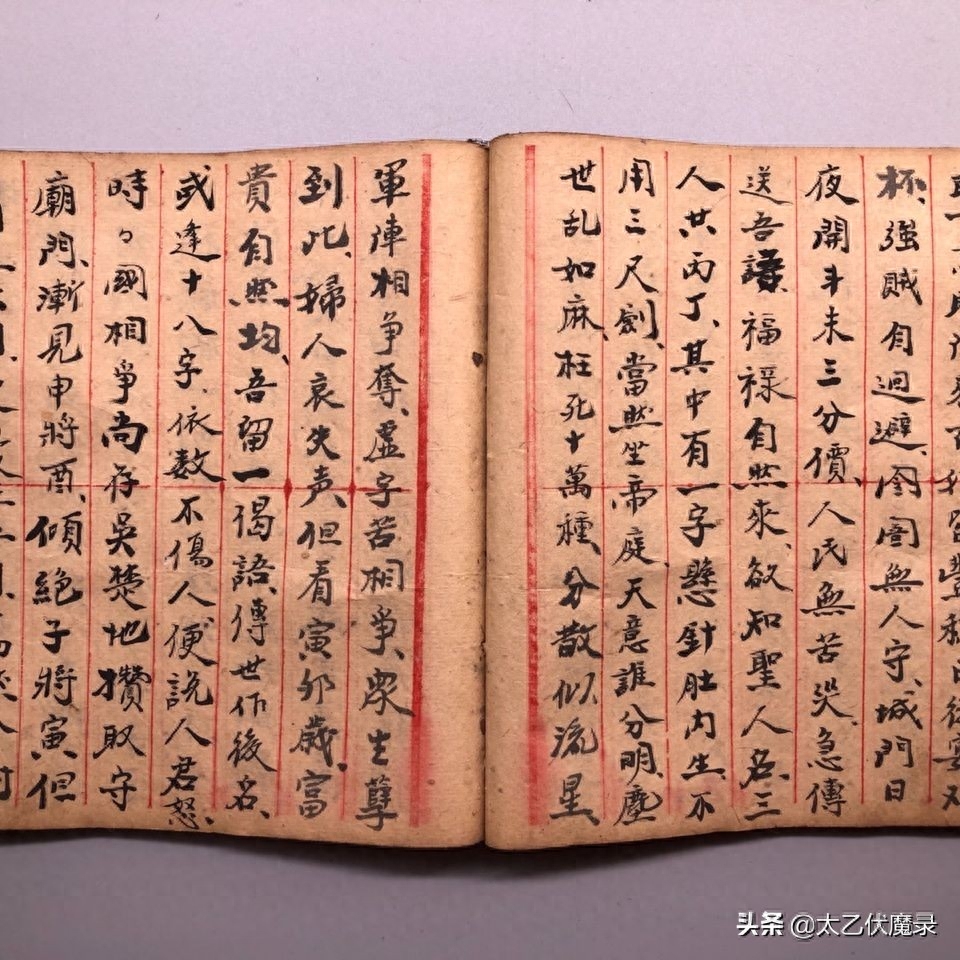 杯、強賊自迴避、囹圄無人守、城門日
夜開斗未三分價、人民無苦哭、急傳
送吾謶、福祿自然來、欲知聖人名、三
人共丙丁、其中有一字懸針肚內生、不
用三尺劍、當然坐帝庭、天意誰分明、塵
世乱如麻、枉死十萬種、分散似流星、
軍陣相爭奪、虛字苦相爭、衆生孽
到此、婦人哀失声、但看寅卯歲、富
貴自然均、吾留一偈語、傳世作後名、
或逢十八字、依数不傷人、便說人君怒、
時々國相爭尚存吳楚地攢取守
廟門、漸見申將酉、傾絕子將寅、但
头条 @太乙伏魔录